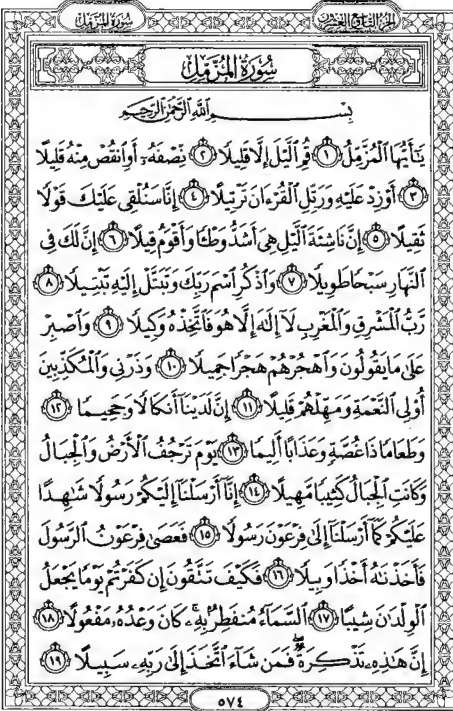 الجزء التاسع والعشرون سورة المزمل
سُورَةُ المُزَّمِّلِ
بِسْمِ اللَّهِ الرَّحْمَٰنِ الرَّحِيمِ
يَٰٓأَيُّهَا ٱلْمُزَّمِّلُ ﴿١﴾ قُمِ ٱلَّيْلَ إِلَّا قَلِيلًا ﴿٢﴾ نِّصْفَهُۥٓ أَوِ ٱنقُصْ مِنْهُ قَلِيلًا
﴿٣﴾ أَوْ زِدْ عَلَيْهِ وَرَتِّلِ ٱلْقُرْءَانَ تَرْتِيلًا ﴿٤﴾ إِنَّا سَنُلْقِى عَلَيْكَ قَوْلًا
ثَقِيلًا ﴿٥﴾ إِنَّ نَاشِئَةَ ٱلَّيْلِ هِىَ أَشَدُّ وَطْـًٔا وَأَقْوَمُ قِيلًا ﴿٦﴾ إِنَّ لَكَ فِى
ٱلنَّهَارِ سَبْحًا طَوِيلًا ﴿٧﴾ وَٱذْكُرِ ٱسْمَ رَبِّكَ وَتَبَتَّلْ إِلَيْهِ تَبْتِيلًا ﴿٨﴾
رَّبُّ ٱلْمَشْرِقِ وَٱلْمَغْرِبِ لَآ إِلَٰهَ إِلَّا هُوَ فَٱتَّخِذْهُ وَكِيلًا ﴿٩﴾ وَٱصْبِرْ
عَلَىٰ مَا يَقُولُونَ وَٱهْجُرْهُمْ هَجْرًا جَمِيلًا ﴿١٠﴾ وَذَرْنِى وَٱلْمُكَذِّبِينَ
أُو۟لِى ٱلنَّعْمَةِ وَمَهِّلْهُمْ قَلِيلًا ﴿١١﴾ إِنَّ لَدَيْنَآ أَنكَالًا وَجَحِيمًا ﴿١٢﴾
وَطَعَامًا ذَا غُصَّةٍ وَعَذَابًا أَلِيمًا ﴿١٣﴾ يَوْمَ تَرْجُفُ ٱلْأَرْضُ وَٱلْجِبَالُ
وَكَانَتِ ٱلْجِبَالُ كَثِيبًا مَّهِيلًا ﴿١٤﴾ إِنَّآ أَرْسَلْنَآ إِلَيْكُمْ رَسُولًا شَٰهِدًا
عَلَيْكُمْ كَمَآ أَرْسَلْنَآ إِلَىٰ فِرْعَوْنَ رَسُولًا ﴿١٥﴾ فَعَصَىٰ فِرْعَوْنُ ٱلرَّسُولَ
فَأَخَذْنَٰهُ أَخْذًا وَبِيلًا ﴿١٦﴾ فَكَيْفَ تَتَّقُونَ إِن كَفَرْتُمْ يَوْمًا يَجْعَلُ
ٱلْوِلْدَٰنَ شِيبًا ﴿١٧﴾ ٱلسَّمَآءُ مُنفَطِرٌۢ بِهِۦ ۚ كَانَ وَعْدُهُۥ مَفْعُولًا ﴿١٨﴾
إِنَّ هَٰذِهِۦ تَذْكِرَةٌ ۖ فَمَن شَآءَ ٱتَّخَذَ إِلَىٰ رَبِّهِۦ سَبِيلًا ﴿١٩﴾
٥٧٤